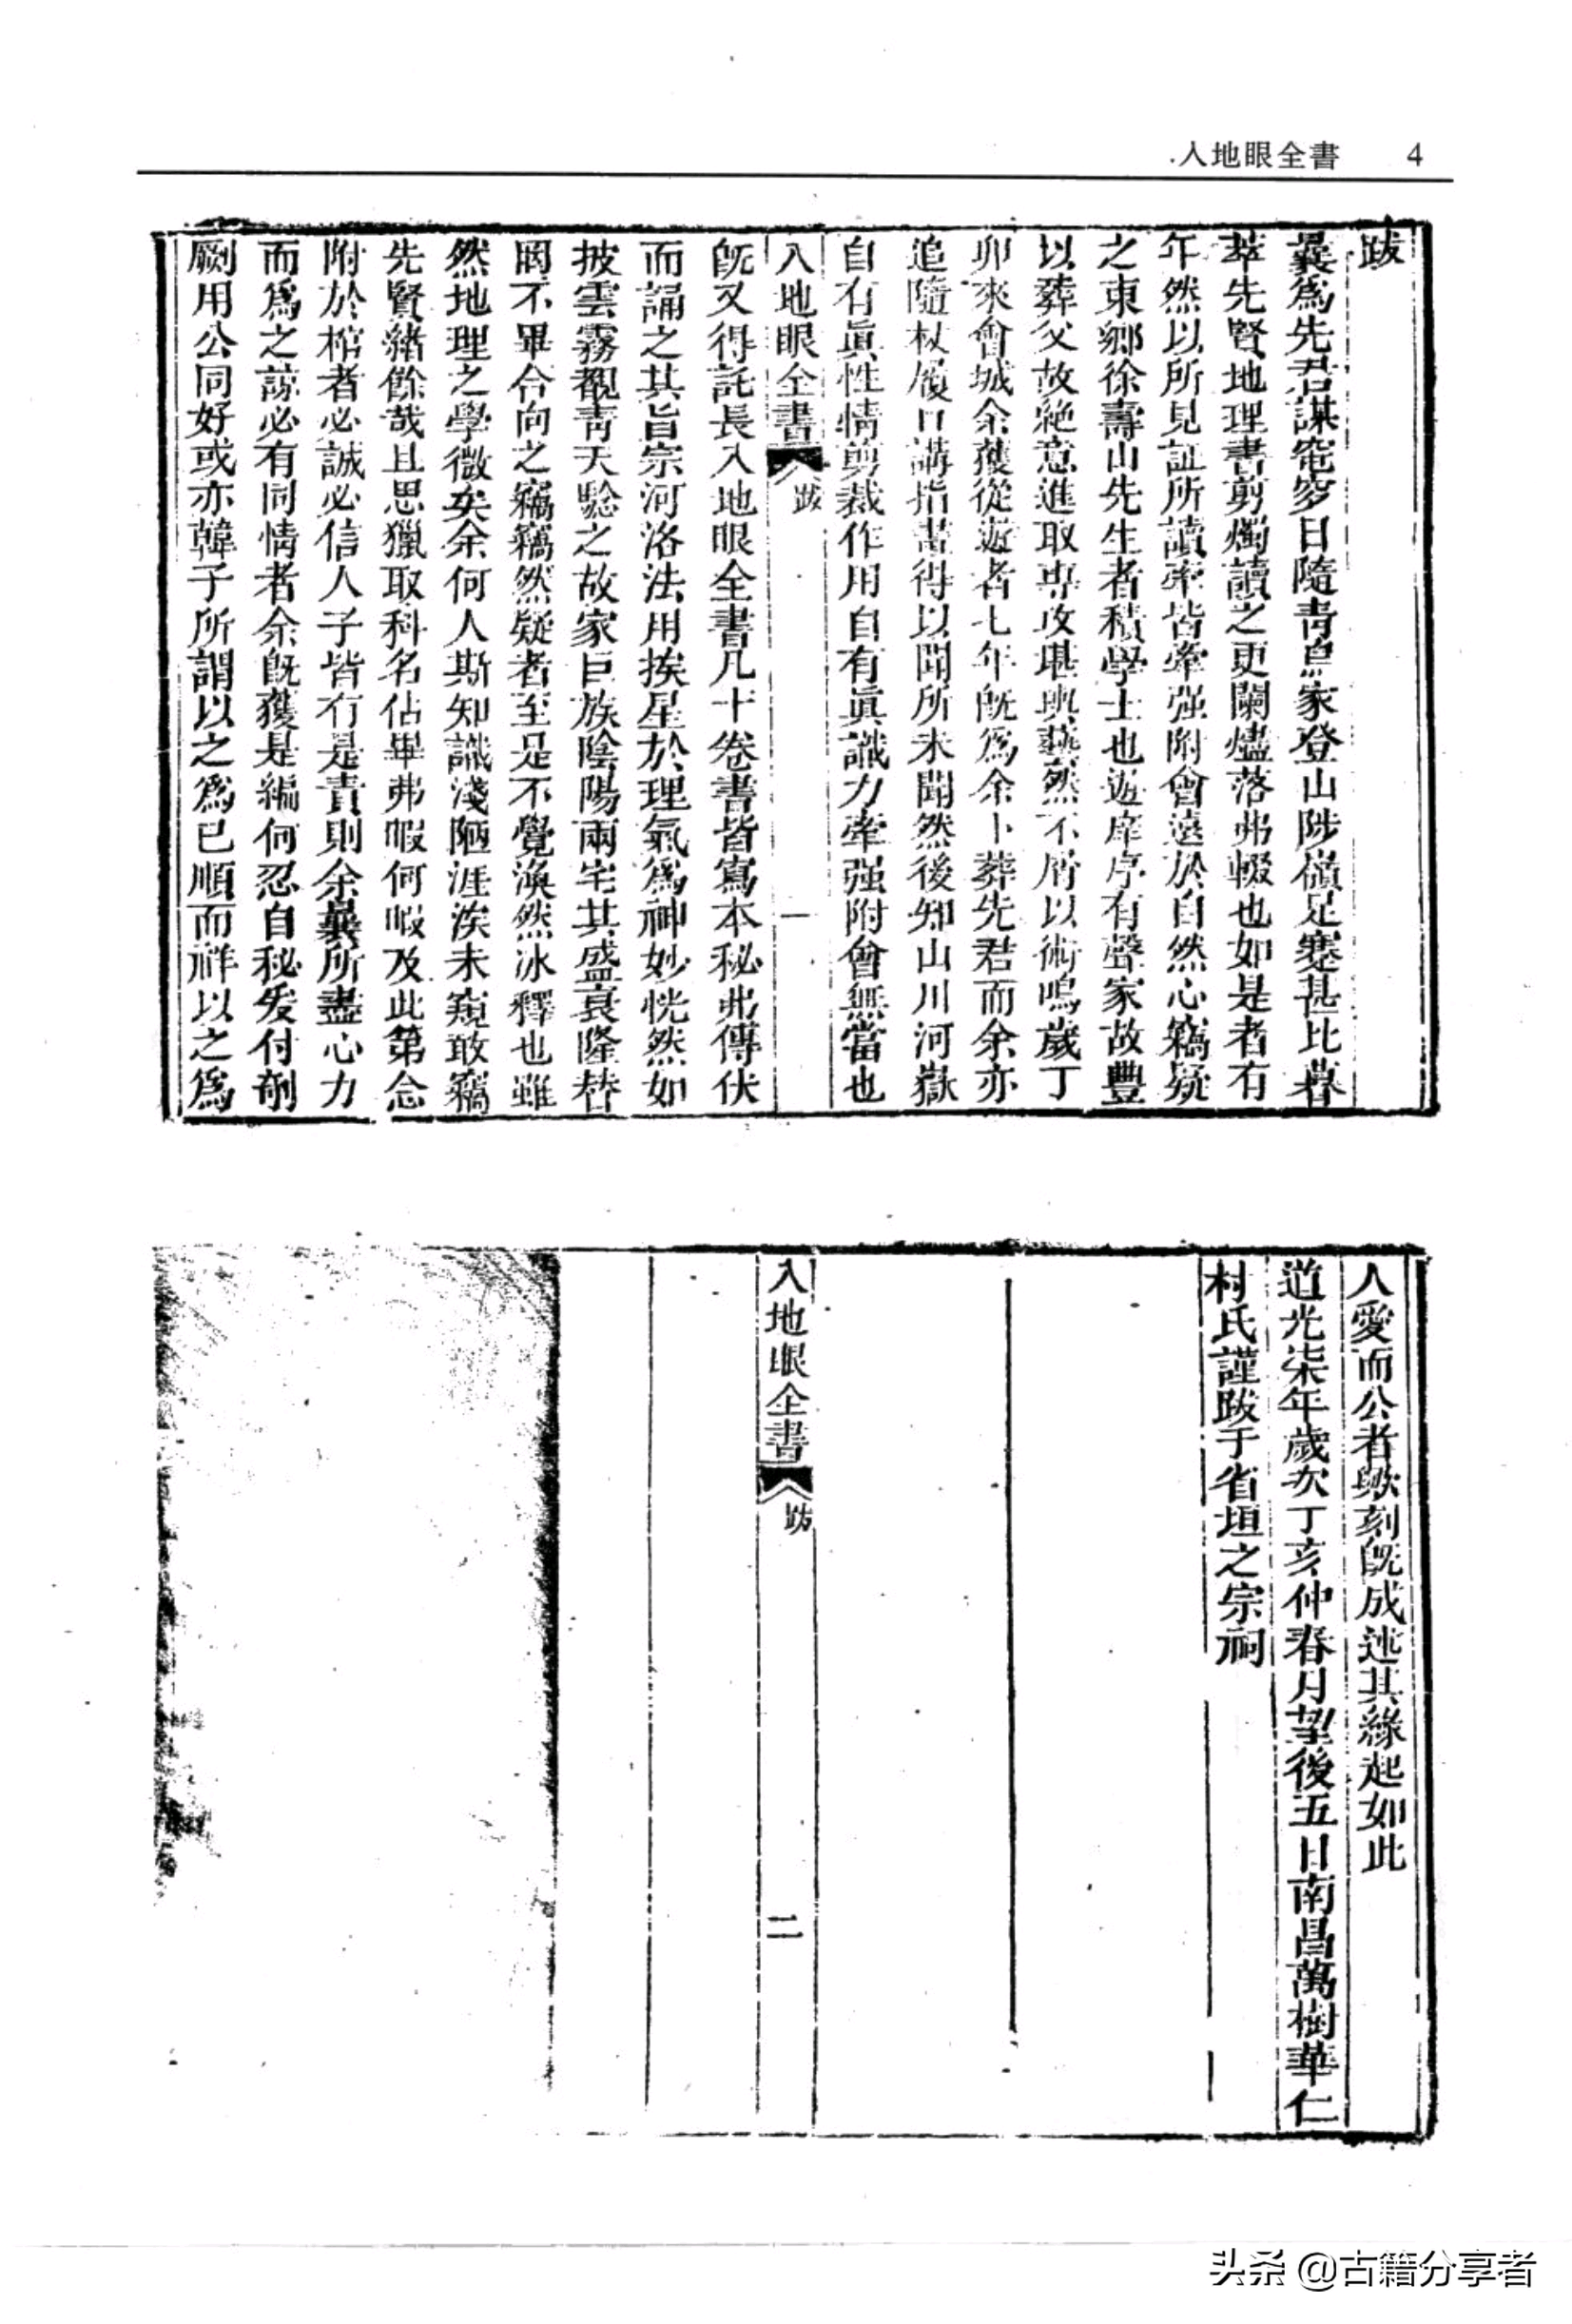 入地眼全書 4
跋
曩爲先君謀窀穸日隨靑烏家登山陟嶺足蹇甚比暮
萃先賢地理書剪燭讀之更闌燼落弗輟也如是者有
年然以所見証所讀率皆牽强附會遠於自然心竊疑
之東鄉徐壽山先生者積學士也遊庠序有聲家故豐
以葬父故絶意進取專攻堪輿藝然不屑以術鳴歲丁
卯來會城余獲從遊者七年旣爲余卜葬先君而余亦
追隨杖履口講指畫得以聞所未聞然後知山川河嶽
自有眞性情剪裁作用自有眞識力牽强附會無當也
入地眼全書 跋 一
旣又得託長入地眼全書凡十卷書皆寫本秘弗傳伏
而誦之其旨宗河洛法用挨星於理氣爲神妙恍然如
披雲霧覩靑天騐之故家巨族陰陽兩宅其盛衰隆替
罔不畢合向之竊竊然疑者至是不覺渙然冰釋也雖
然地理之學微矣余何人斯知識淺陋涯涘未窺敢竊
先賢緒餘哉且思獵取科名佔畢弗暇何暇及此第念
附於棺者必誠必信人子皆有是責則余曩所盡心力
而爲之諒必有同情者余旣獲是編何忍自秘爰付剞
劂用公同好或亦韓子所謂以之爲已順而祥以之爲
人愛而公者歟刻旣成述其緣起如此
道光柒年歲次丁亥仲春月望後五日南昌萬樹華仁
村氏謹跋于省垣之宗祠
入地眼全書 跋 二
头条 @古籍分享者